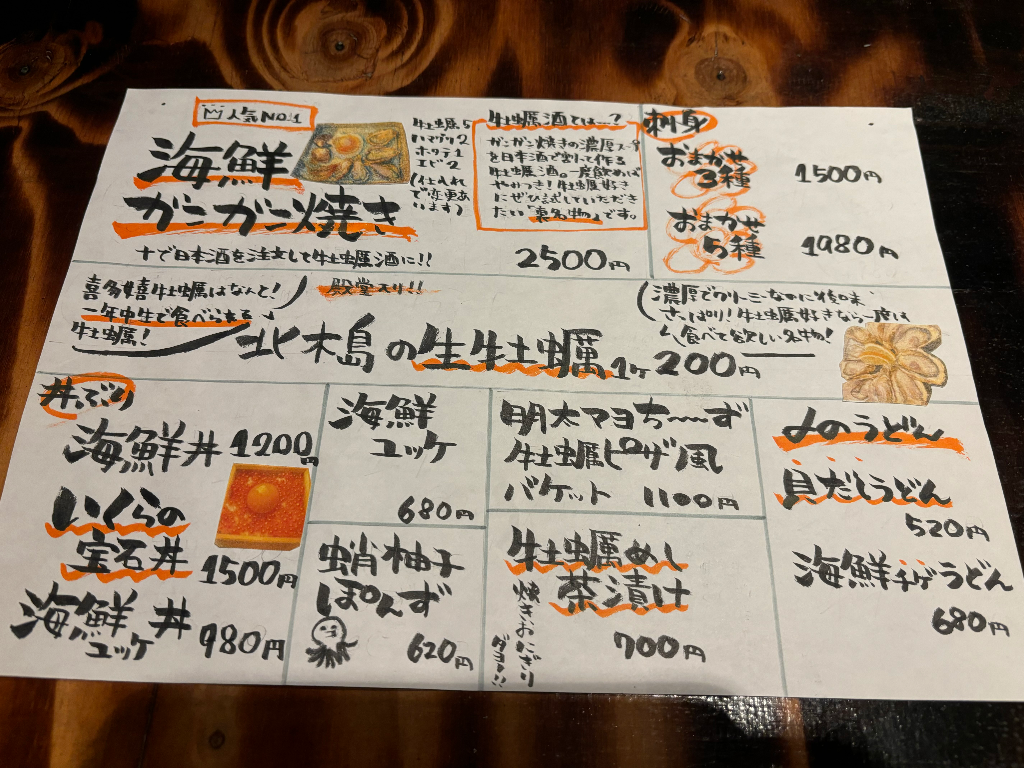 人気No.1
海鮮
ガンガン焼き
牡蠣5
ハマグリ2
ホタテ1
エビ2
(仕入れ
で変更あ
います)
十で日本酒を注文して牡蠣酒に!!
2500円
牡蠣酒とは…?
ガンガン焼きの濃厚
を日本酒で割って作る
牡蠣酒。一度飲めば
やみつき!牡蠣好き
にぜひ試していただき
たい「裏名物」です。
刺身
おまかせ
3種 1500円
おまかせ
5種 1980円
喜多嬉牡蠣はなんと!
一年中生で食べられる
牡蠣!
殿堂入り!!
北木島の生牡蠣 1ヶ200円
濃厚でクリーミーなのに後味
さっぱり!牡蠣好きなら一度は
食べて欲しい名物!
丼ぶり
海鮮丼 1200円
いくらの
宝石丼
1500円
海鮮
ユッケ
丼 980円
海鮮
ユッケ
680円
蛸柚子
ぽんず
620円
明太マヨち〜ず
牡蠣ピザ風
バケット 1100円
牡蠣めし
茶漬け
焼きおにぎり
ダヨー!!
700円
〆のうどん
貝だしうどん
520円
海鮮チゲうどん
680円